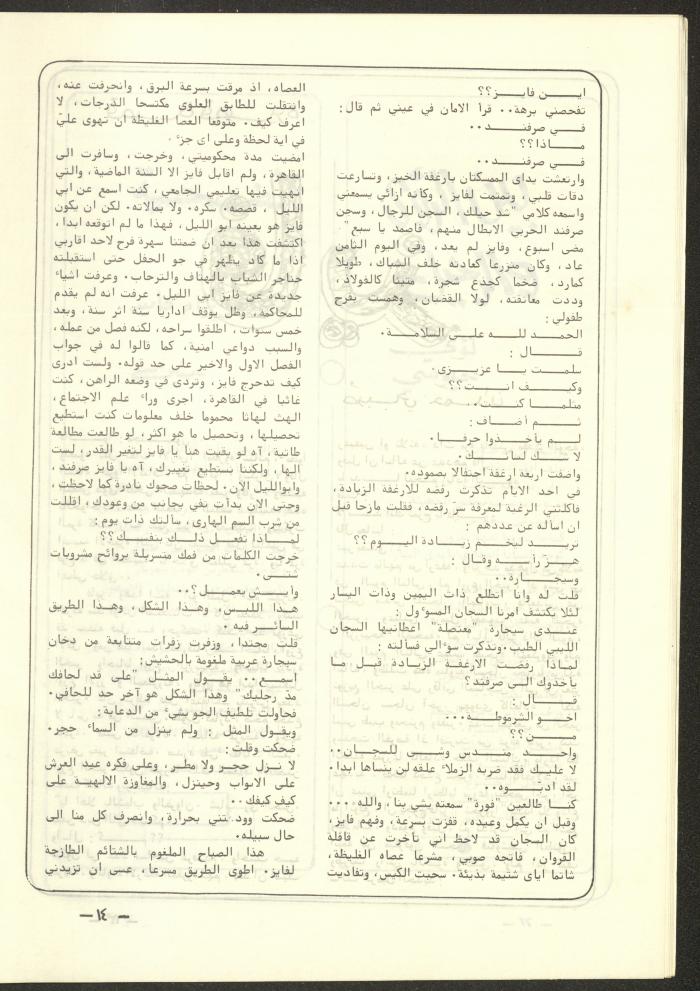 ايـــن فايـــز؟؟
تفحصني برهة٠٠ قرأ الامان في عيني ثم قال:
فـــي صرفنـــد٠٠
مـــاذا؟؟
فـــي صرفنـــد٠٠
وارتعشت يداي الممسكتان بارغفة الخبز، وتسارعت
دقات قلبي، وتمتمت لفايز، وكأنه ازائي يسمعني
واسمعه كلامي "شد حيلك، السجن للرجال، وسجن
صرفند الحربي الابطال منهم، فاصمد يا سبع"
مضى اسبوع، وفايز لم يعد، وفي اليوم الثامن
عاد، وكان منزرعا كعادته خلف الشباك، طويلا
كمارد، ضخما كجذع شجرة، متينا كالفولاذ،
وددت معانقته، لولا القضبان، وهمست بفرح
طفولي:
الحمـد للـــه علـــى السلامـــة٠
قـــال:
سلمـت يـــا عزيـــزي٠
وكيـــف انـــت؟؟
مثلمـــا كنـــت٠٠
ثـــم أضـــاف:
لـــم يأخـــذوا حرفـــا٠
لا شـــك لسانـــك٠
واضفت اربعة ارغفة احتفالا بصموده٠
في احد الايام تذكرت رفضه للارغفة الزيادة،
فأكلتني الرغبة لمعرفة سر رفضه، فقلت مازحا قبل
ان اسأله عن عددهم:
تريـــد لبخـــم زيـــادة اليـــوم؟؟
هـــز رأســـه وقـــال:
وسيجـــارة٠٠
قلت له وانا اتطلع ذات اليمين وذات اليسار
لئلا يكتشف امرنا السجان المسوءول:
عنـــدي سيجارة "معتصلة" اعطانيها السجان
الليبي الطيب٠وتذكرت سوءالي فسألته:
لماذا رفضت الارغفـة الزيـادة قبـل مـا
يأخذوك الـى صرفند؟
قـــال:
اخـــو الشرموطـــة٠٠٠
مـــن؟؟
واحـــد منـــدس وشـــى للسجـــان٠٠
لا عليـك فقد ضربه الزملاء علقه لن ينساها ابدا٠
لقد ادبـــوه٠٠
كنـــا طالعين "فورة" سمعته يشي بنا، والله٠٠٠
وقبل ان يكمل وعيده، قفزت بسرعة، وفهم فايز،
كان السجان قد لاحظ اني تأخرت عن قافلة
القروان، فاتجه صوبي، مشرعا عصاه الغليظة،
شاتما اياي شتيمة بذيئة٠ سحبت الكيس، وتفاديت
العصاه، اذ مرقت بسرعة البرق، وانحرفت عنه،
وانتقلت للطابق العلوي مكتسحا الدرجات، لا
اعرف كيف٠ متوقعا العصا الغليظة ان تهوى علي
في اية لحظة وعلى اي جزء٠
امضيت مدة محكوميتي، وخرجت، وسافرت الى
القاهرة، ولم اقابل فايز الا السنة الماضية، والتي
انهيت فيها تعليمي الجامعي، كنت اسمع عن ابي
الليل، قصصه٠ سكره٠ ولا يمالاته٠ لكن ان يكون
فايز هو بعينه ابو الليل، فهذا ما لم اتوقعه ابدا،
اكتشفت هذا بعد ان ضمتنا سهرة فرح لاحد اقاربي
اذا ما كاد يظهر في جو الحفل حتى استقبلته
حناجر الشباب بالهتاف والترحاب٠ وعرفت اشياء
جديده عن فايز ابي الليل٠ عرفت انه لم يقدم
للمحاكمة، وظل يوقف اداريا سنة اثر سنة، وبعد
خمس سنوات، اطلقوا سراحه، لكنه فصل من عمله،
والسبب دواعي امنية، كما قالوا له في جواب
الفصل الاول والاخير على حد قوله٠ ولست ادري
كيف تدحرج فايز، وتردى في وضعه الراهن، كنت
غائبا في القاهرة، اجرى وراء علم الاجتماع،
الهث لهاثا محموما خلف معلومات كنت استطيع
تحصيلها، وتحصيل ما هو اكثر، لو طالعت مطالعة
طاتية، آه لو بقيت هنا يا فايز لتغير القدر، لست
الها، ولكننا نستطيع تغييرك، آه يا فايز صرفند،
وابوالليل الآن٠ لحظات صحوك نادرة كما لاحظت،
وحتى الان بدأت تفي بجانب من وعودك، اقللت
من شرب السم الهارى، سألتك ذات يوم:
لمـــاذا تفعـــل ذلـــك بنفســـك؟؟
خرجت الكلمات من فمك متسربلة بروائح مشروبات
شتـــى٠
وأيـــش بعمـــل؟٠٠
هـــذا اللبـــس، وهـــذا الشكل، وهـــذا الطريق
السائـــر فيه٠
قلت محتدا، وزفرت زفرات متتابعة من دخان
سيجارة عربية ملغومة بالحشيش:
اسمـــع٠٠ يقـــول المثـــل "على قد لحافك
مد رجليك" وهذا الشكل هو آخر حد للحافي٠
فحاولت تلطيف الجو بشيء من الدعابة:
ويقـول المثل: ولم ينزل من السماء حجر٠
ضحكت وقلت:
لا نـــزل حجـــر ولا مطـــر، وعلى فكره عيد العرش
على الابواب وحينزل، والمفاوزة الالهيـة على
كيف كيفك٠٠
ضحكت وودعتني بحرارة، وانصرف كل منا الى
حال سبيله٠
هذا الصباح الملغوم بالشتائم الطازجة
لفايز٠ اطوى الطريق مسرعا، عسى ان تزيدني
— ١٤ —